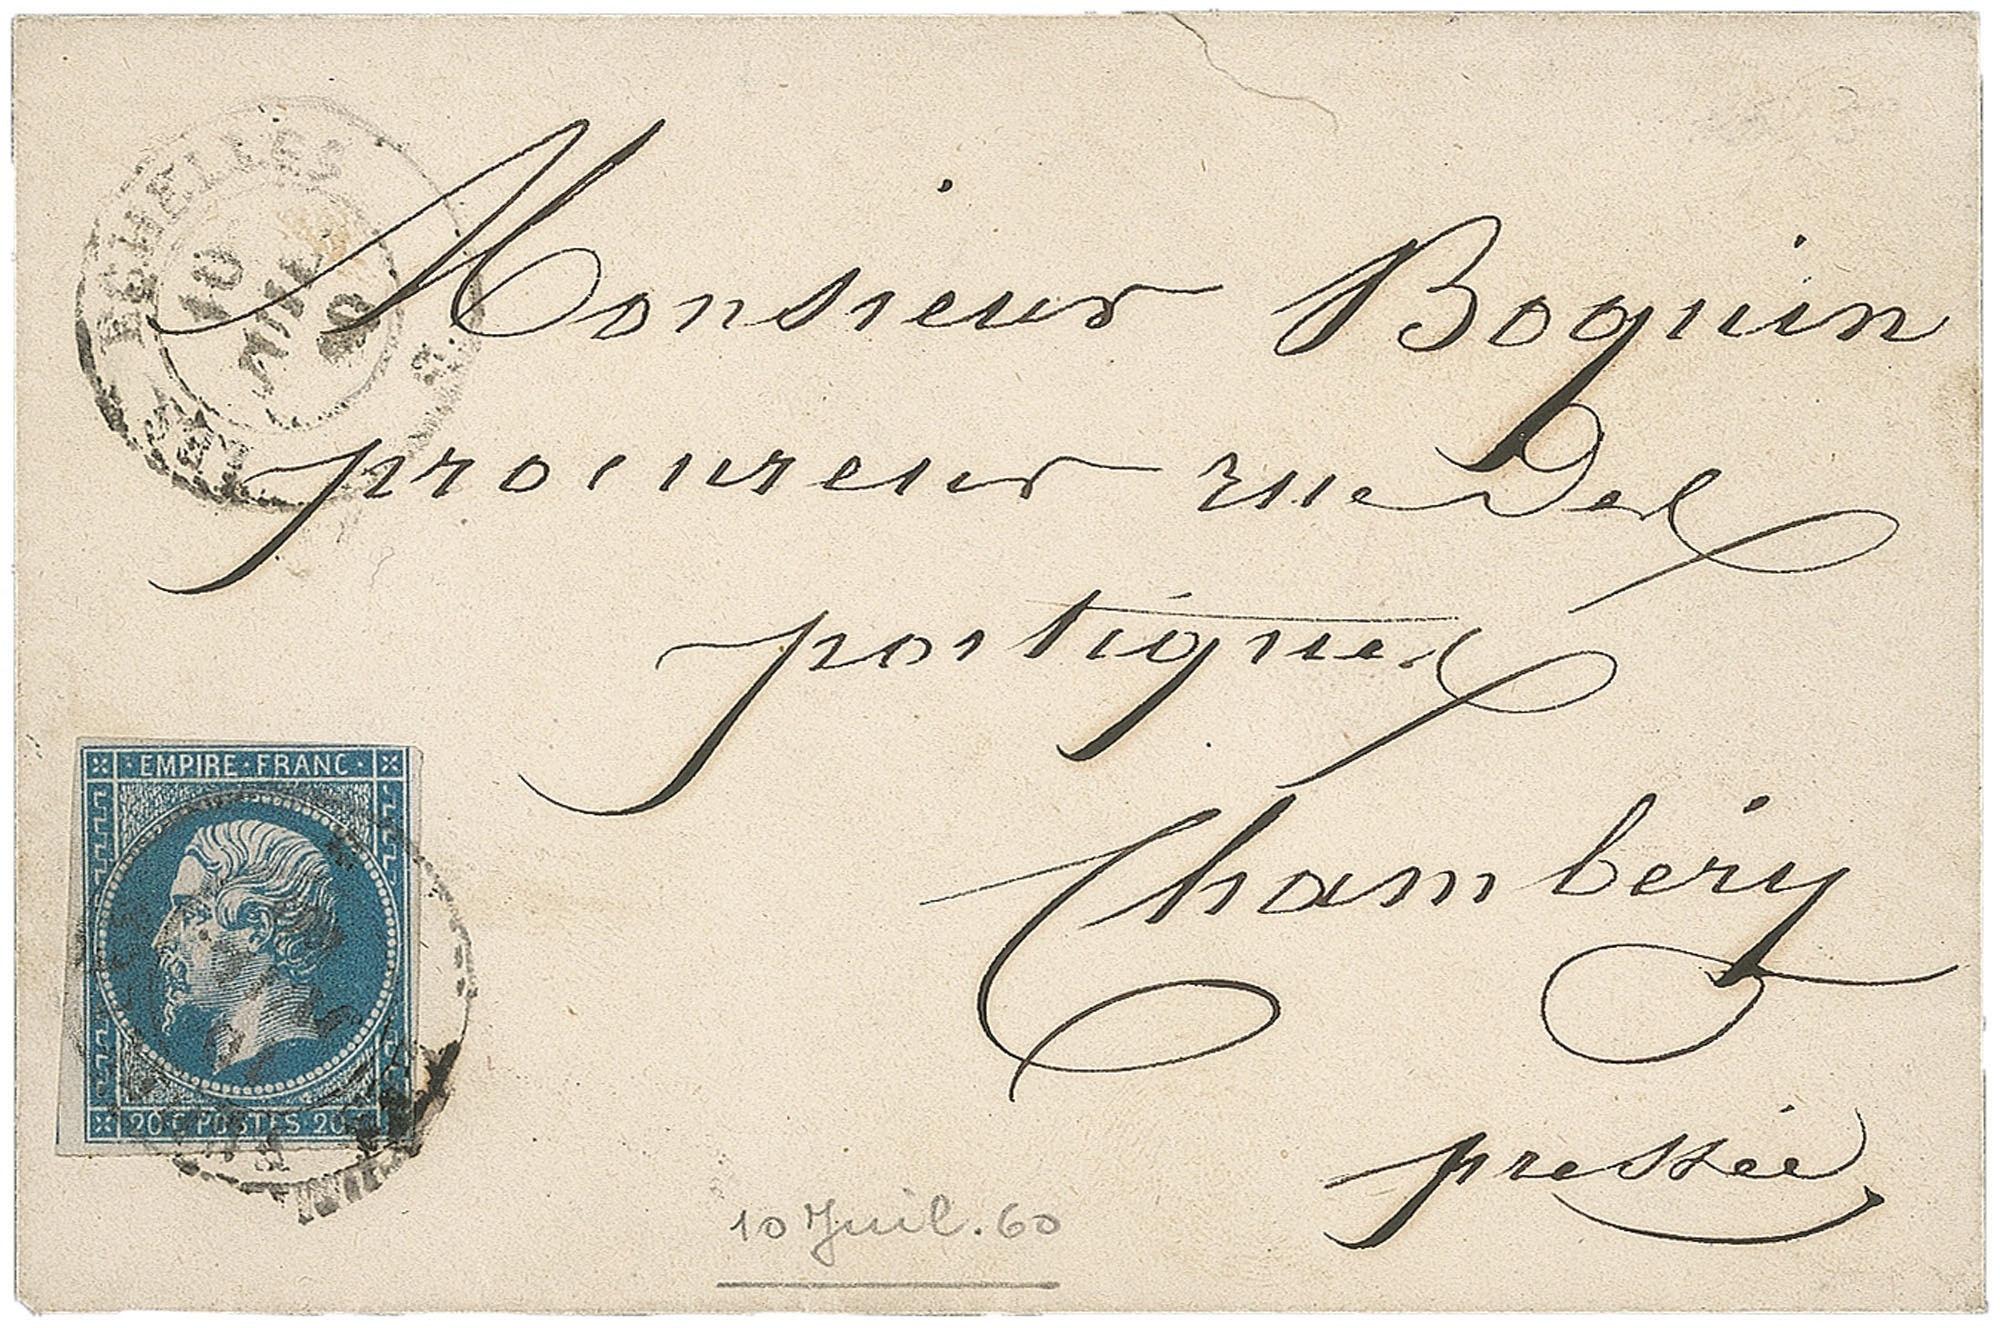 ECHELLES
10
JUIL
60
Monsieur Boquin
procureur rue Des
portiques
Chambéry
pressée
EMPIRE · FRANC ·
20 C POSTES 20 C
10 Juil. 60